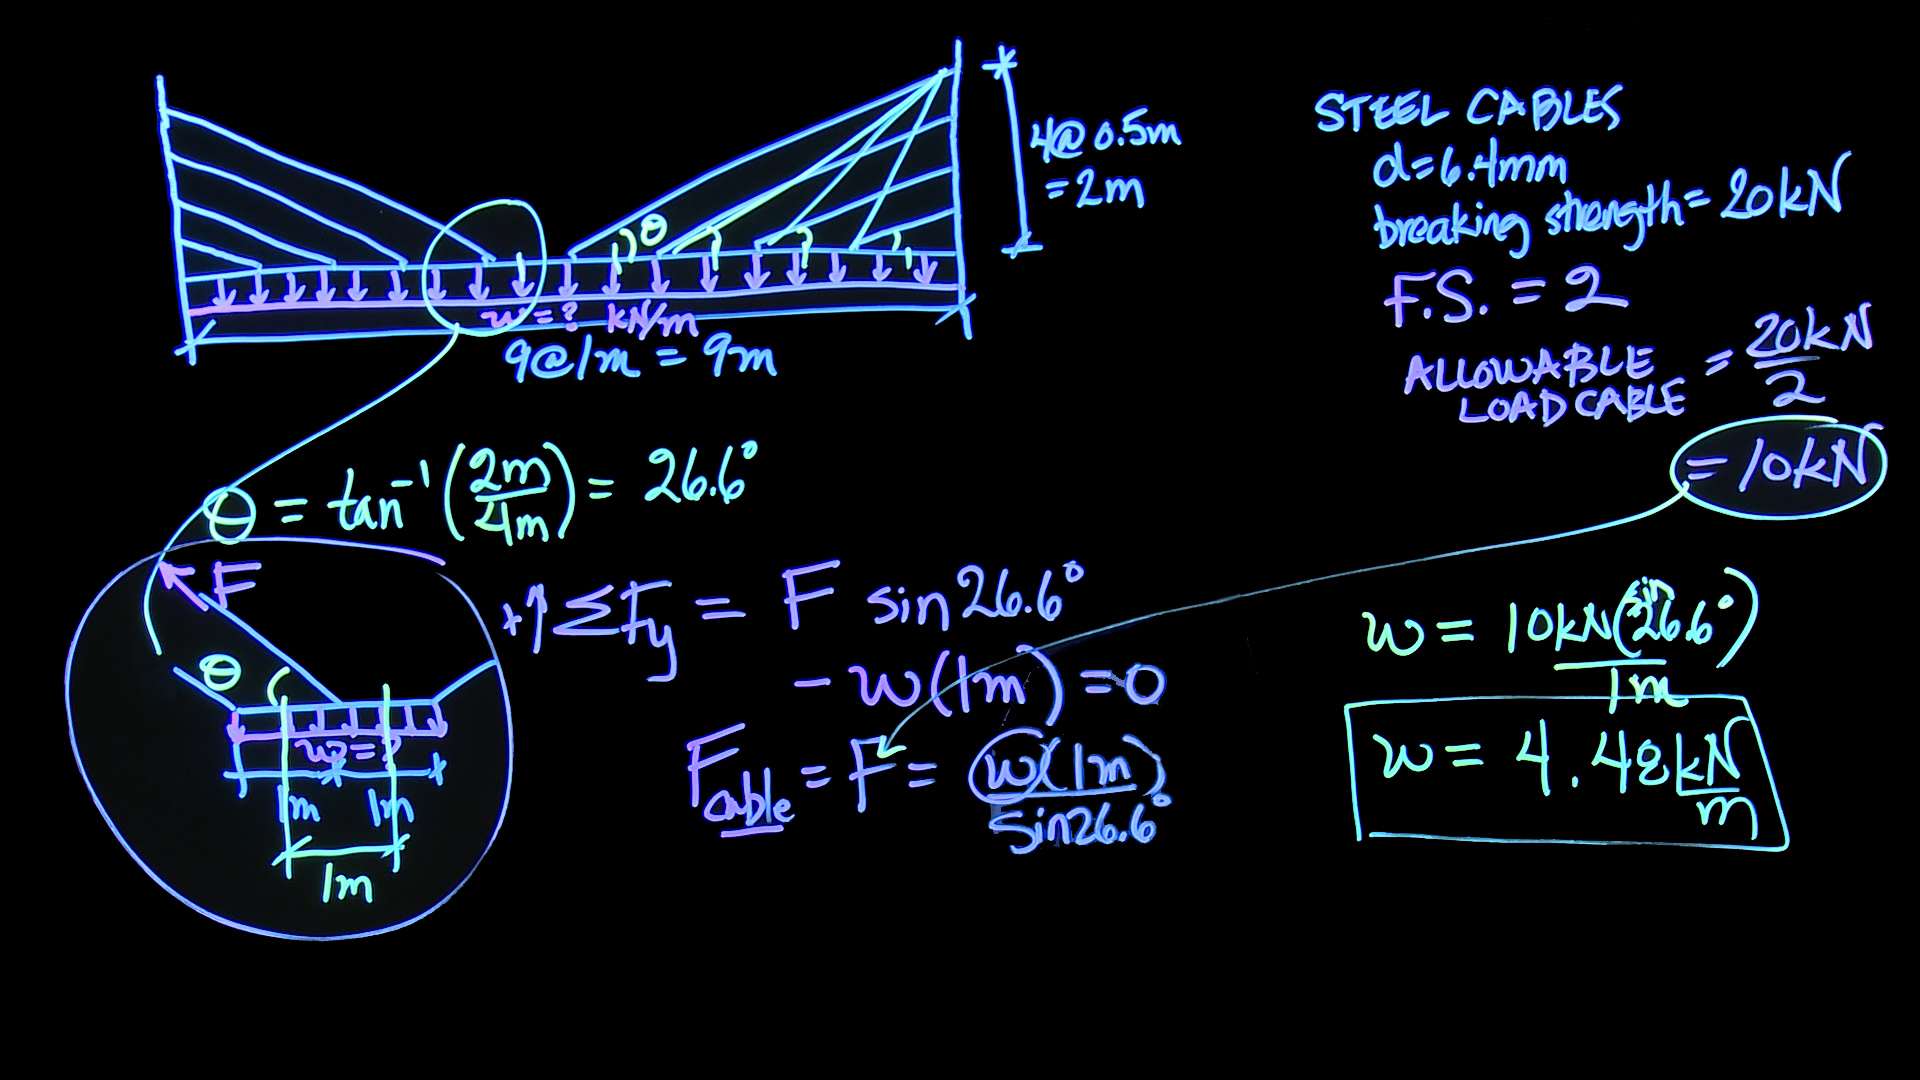 4@ 0.5m
= 2m
θ
w = ? kN/m
9@1m = 9m
STEEL CABLES
d=6.4mm
breaking strength = 20kN
F.S. = 2
ALLOWABLE LOAD CABLE = 20kN/2
= 10kN
θ = tan⁻¹(2m/4m) = 26.6°
F
θ
w = ?
1m 1m
1m
+↑ΣFy = F sin26.6°
- w(1m) = 0
Fcable = F = w(1m)/sin26.6°
w = 10kN(sin26.6°)/1m
w = 4.48kN/m